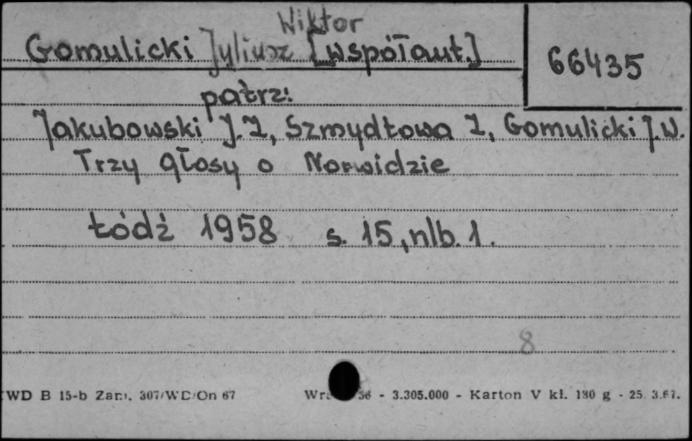 Wiktor
Gomulicki Juliusz [współaut.]
66435
patrz:
Jakubowski J.Z, Szmydtowa Z, Gomulicki J.W.
Trzy głosy o Norwidzie
Łódź 1958 s. 15, nlb. 1.
8
WD B 15-b Zam. 307/WD/On 67 56 - 3.305.000 - Karton V kl. 180 g - 25. 3.67.